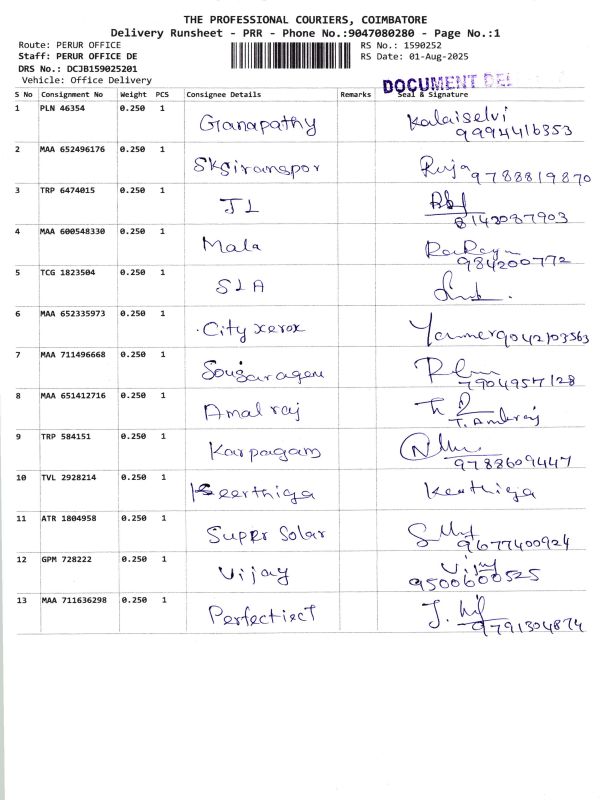 THE PROFESSIONAL COURIERS, COIMBATORE
Delivery Runsheet - PRR - Phone No.:9047080280 - Page No.:1
Route: PERUR OFFICE RS No.: 1590252
Staff: PERUR OFFICE DE RS Date: 01-Aug-2025
DRS No.: DCJB159025201
Vehicle: Office Delivery
DOCUMENT DEL
S No Consignment No Weight PCS Consignee Details Remarks Seal & Signature
1 PLN 46354 0.250 1 Gianapathy Kalaiselvi
9994416353
2 MAA 652496176 0.250 1 Ruja
9788819870
3 TRP 6474015 0.250 1 JL
8142087903
4 MAA 600548330 0.250 1 Mala
984200772
5 TCG 1823504 0.250 1 SLA
6 MAA 652335973 0.250 1 City xerox 9042103563
7 MAA 711496668 0.250 1
7904957128
8 MAA 651412716 0.250 1 Amal raj
9 TRP 584151 0.250 1 Karpagam
9788609447
10 TVL 2928214 0.250 1 Keerthiga Keerthiga
11 ATR 1804958 0.250 1 Supper Solar
9677400924
12 GPM 728222 0.250 1 Vijay Vijay
9500600525
13 MAA 711636298 0.250 1 Perfectiect
9791304874